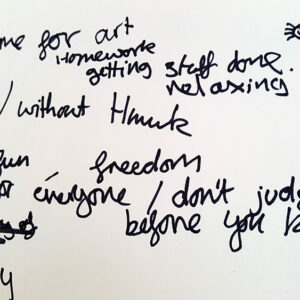 me for art
Homework
getting stuff done.
relaxing
/ without Hmwk
fun freedom
for everyone / don't judg
before you k
y